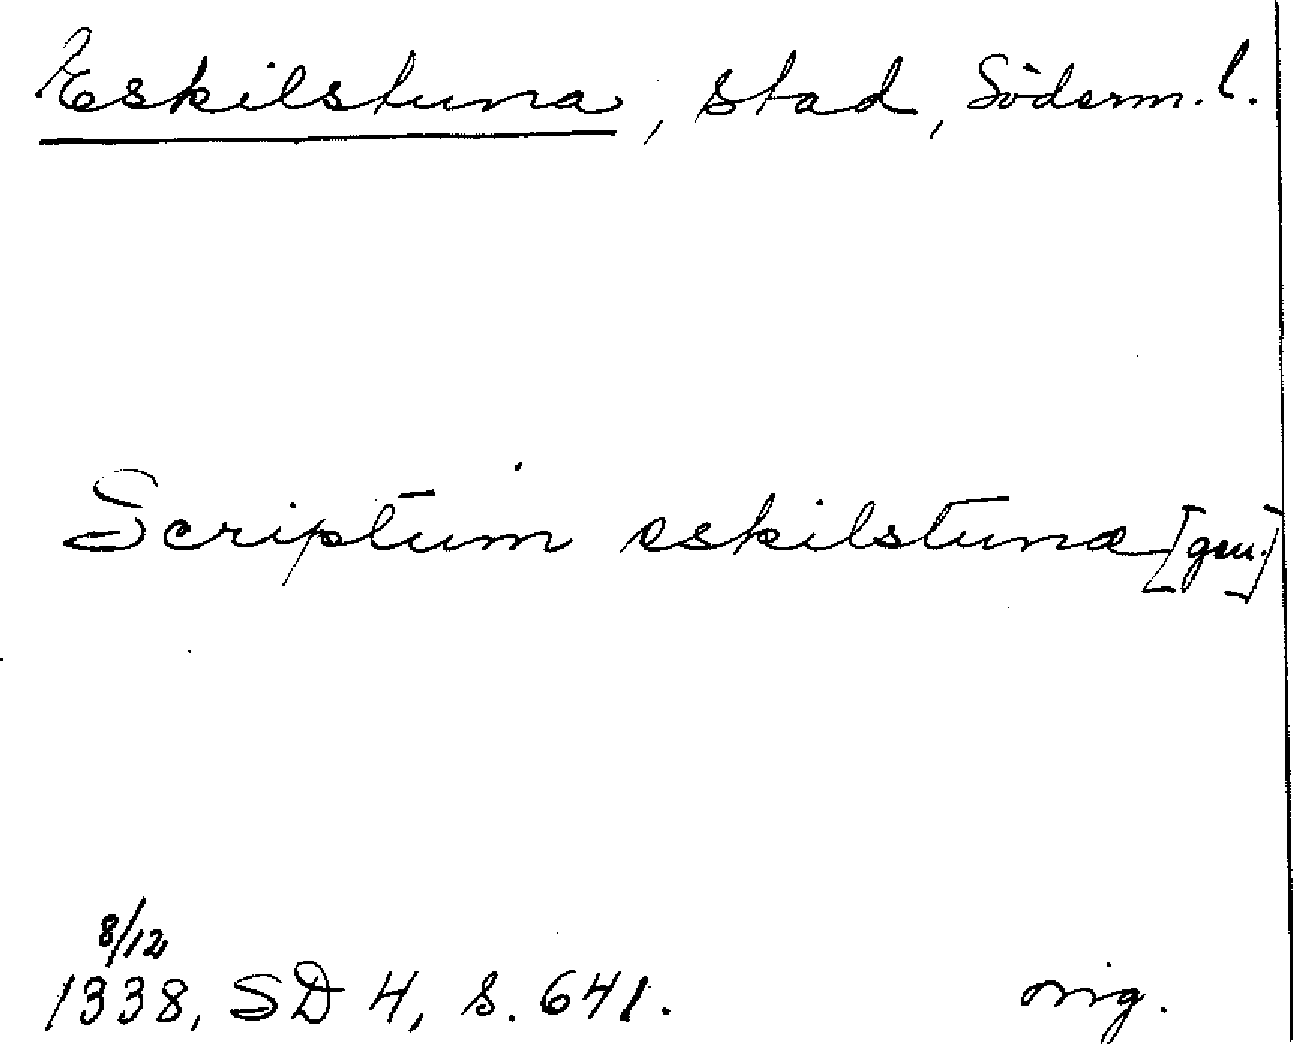 Eskilstuna, stad, Söderm. l.
Scriptum eskilstunæ [gen.]
8/12
1338, SD 4, s. 641. orig.